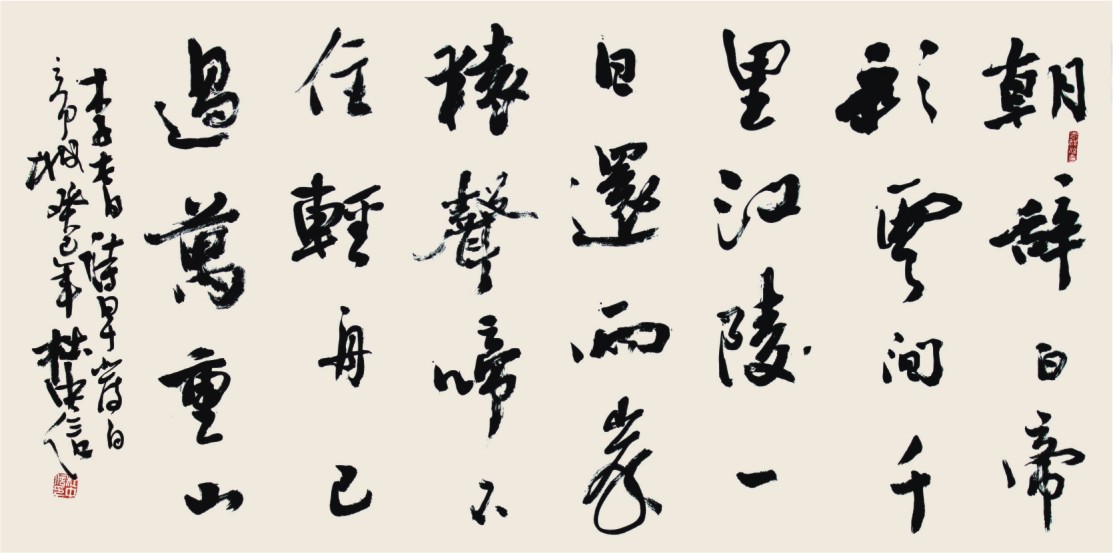 朝辭白帝
彩雲间千
里江陵一
日還兩岸
猿聲啼不
住輕舟已
過萬重山
李太白詩早發白
帝城癸巳年杜中信